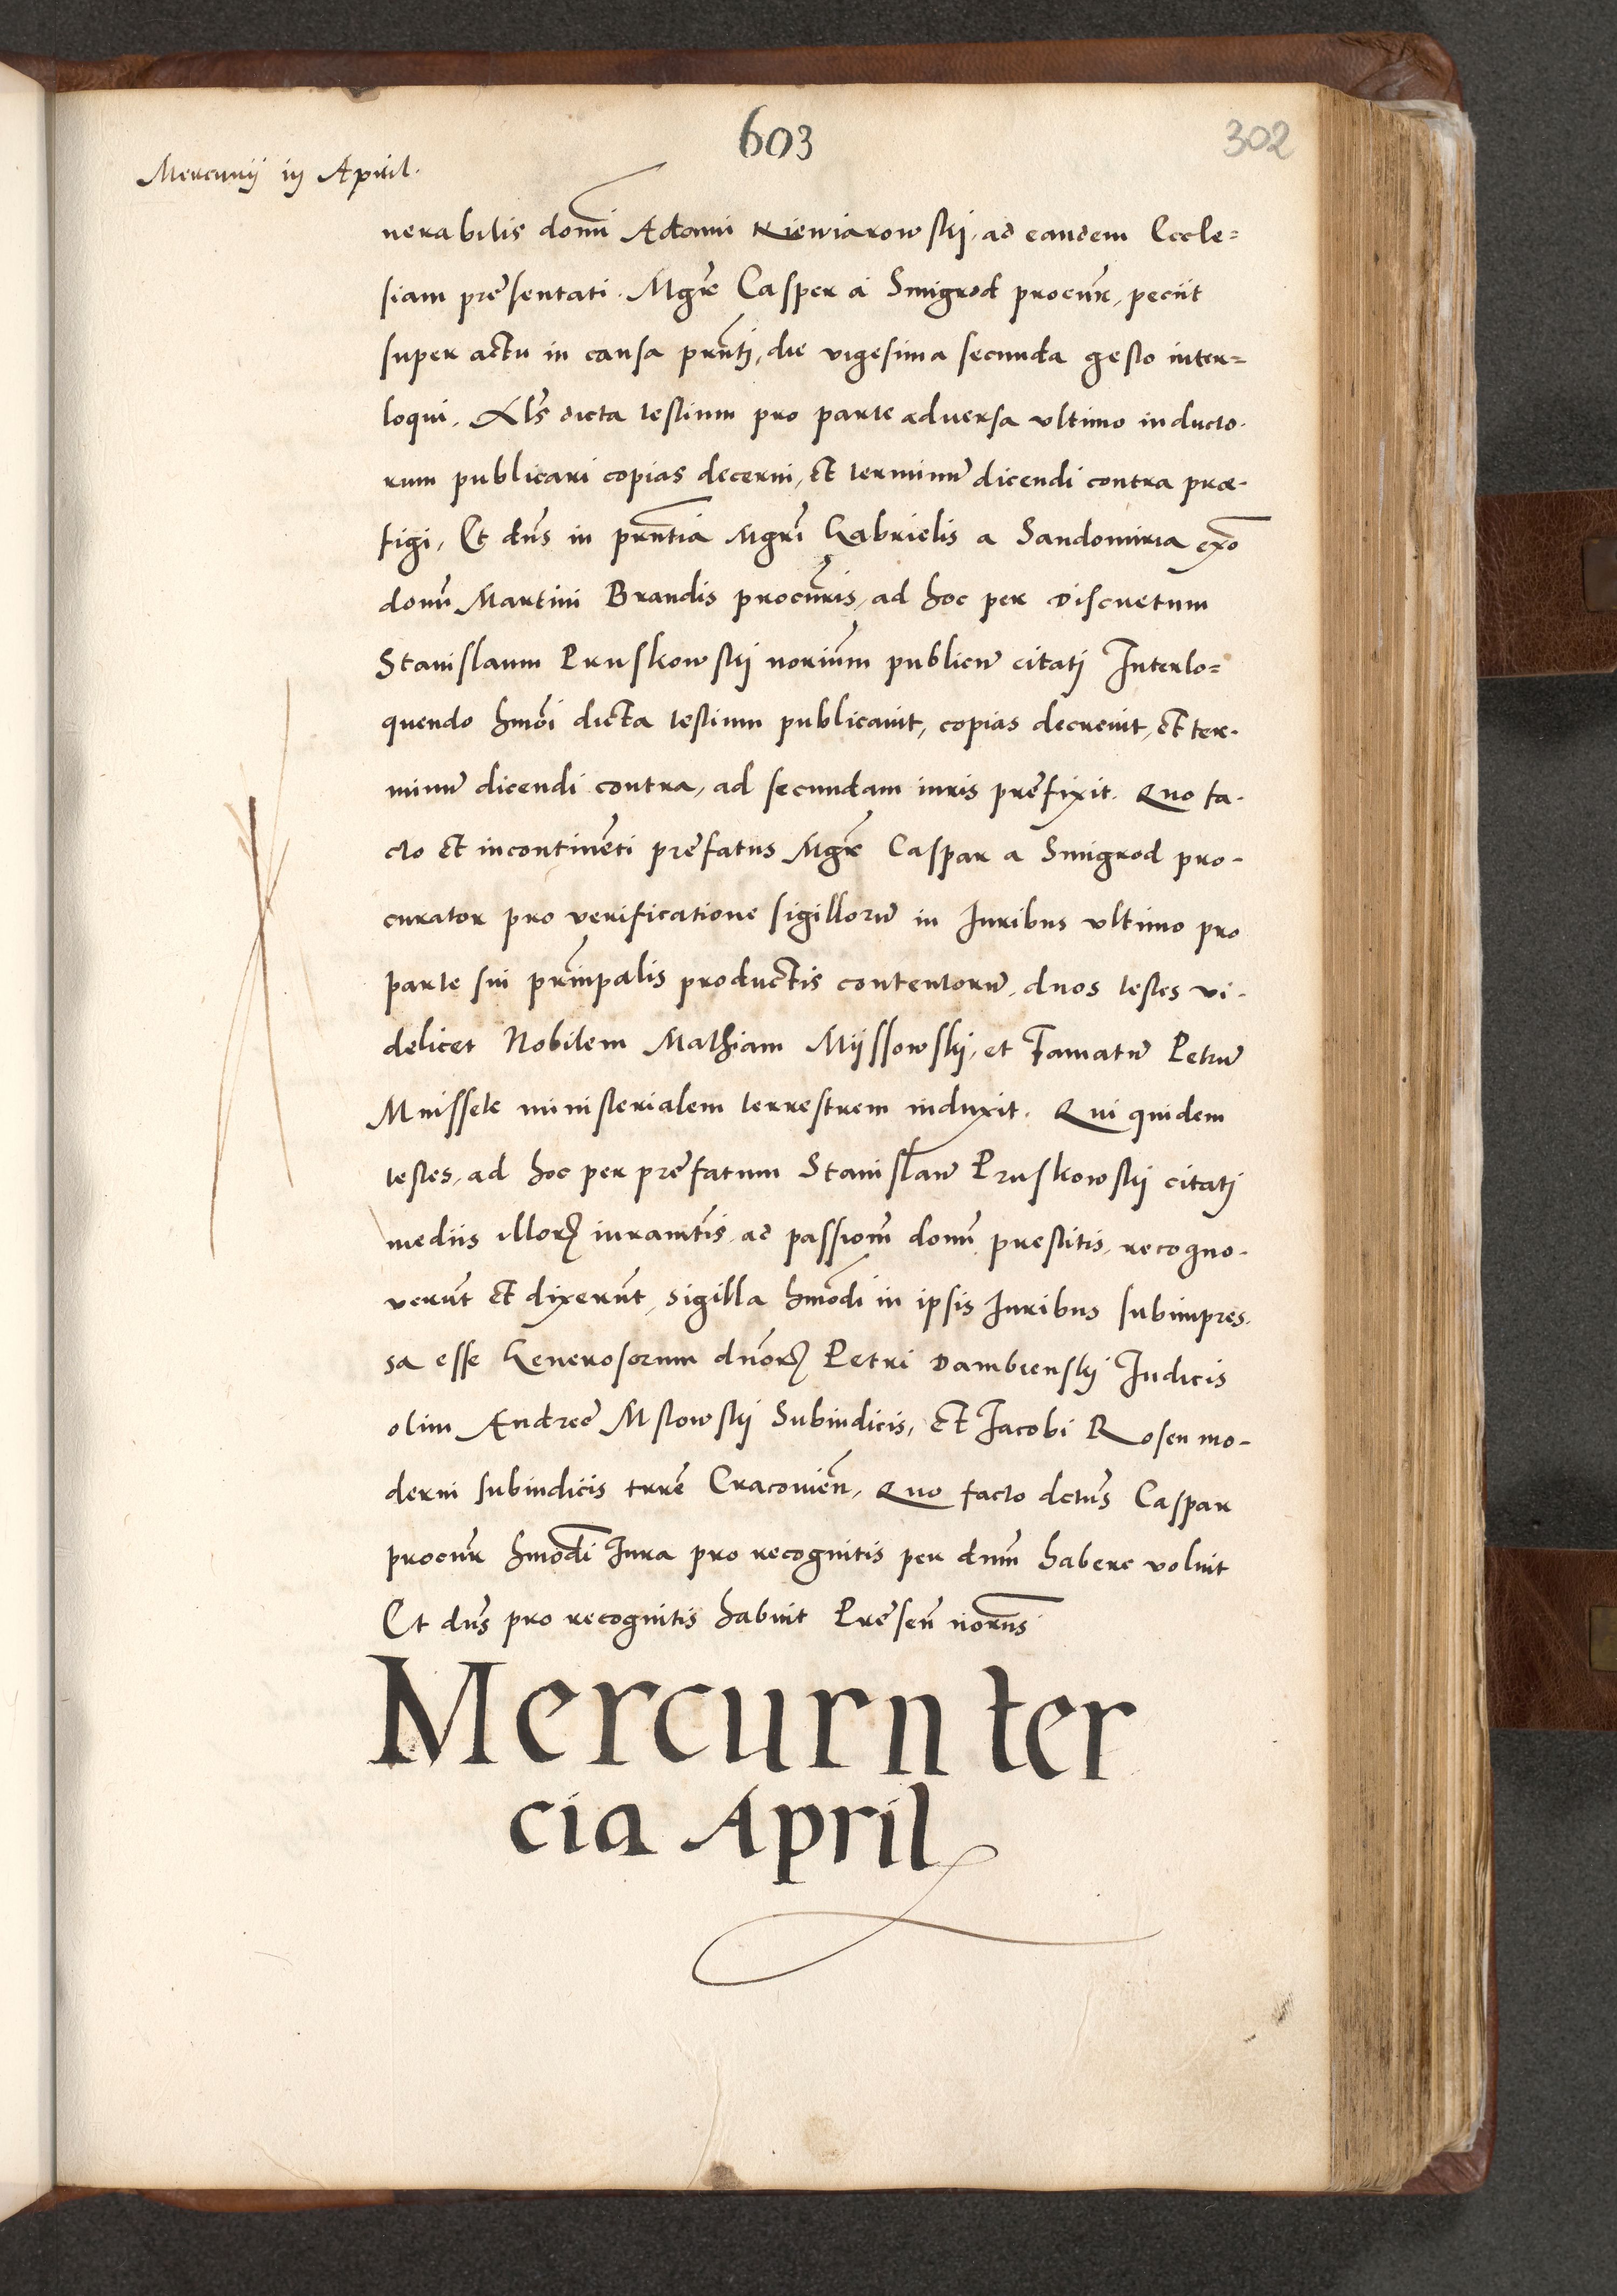 603
302
Mercurij iij April.
nerabilis domi Adami Niewiarowskij, ad eandem Eccle=
siam presentati. Mgr Casper a Smigrod procur, peciit
super actu in causa prntj, die vigesima secunda gesto inter=
loqui. Als dicta testium pro parte adversa ultimo inducto-
rum publicari copias decerni, et terminu dicendi contra prae-
figi, Et dns in prntia Mgri Gabrielis a Sandomiria exo
domi Martini Brandis procuris, ad hoc per Discretum
Stanislaum Pruskowskij norium publicu citatj Interlo=
quendo hmoi dicta testium publicavit, copias decrevit, et ter-
minu dicendi contra, ad secundam iuris prefixit. Quo fa-
cto et incontinenti prefatus Mgr Caspar a Smigrod pro-
curator pro verificatione sigilloru in Juribus ultimo pro
parte sui prinipalis productis contentoru, duos testes vi-
delicet Nobilem Mathiam Mijssowskij, et Famatu Petru
Mnissek ministerialem terrestrem induxit. Qui quidem
testes, ad hoc per prefatum Stanislau Pruskowskij citatj
mediis illorum iuramtis, ad passiom domi prestitis, recogno-
verunt et dixerunt, sigilla hmodi in ipsis Juribus subimpres-
sa esse Generosorum dnorum Petri Dambienskij Judicis
olim Andree Mstowskij Subiudicis, et Jacobi Rosen mo-
derni subiudicis trre Cracovien, Quo facto dctus Caspar
procur hmodi Jura pro recognitis per dnm habere voluit
Et dns pro recognitis habuit Presen norus
Mercurii ter
cia April